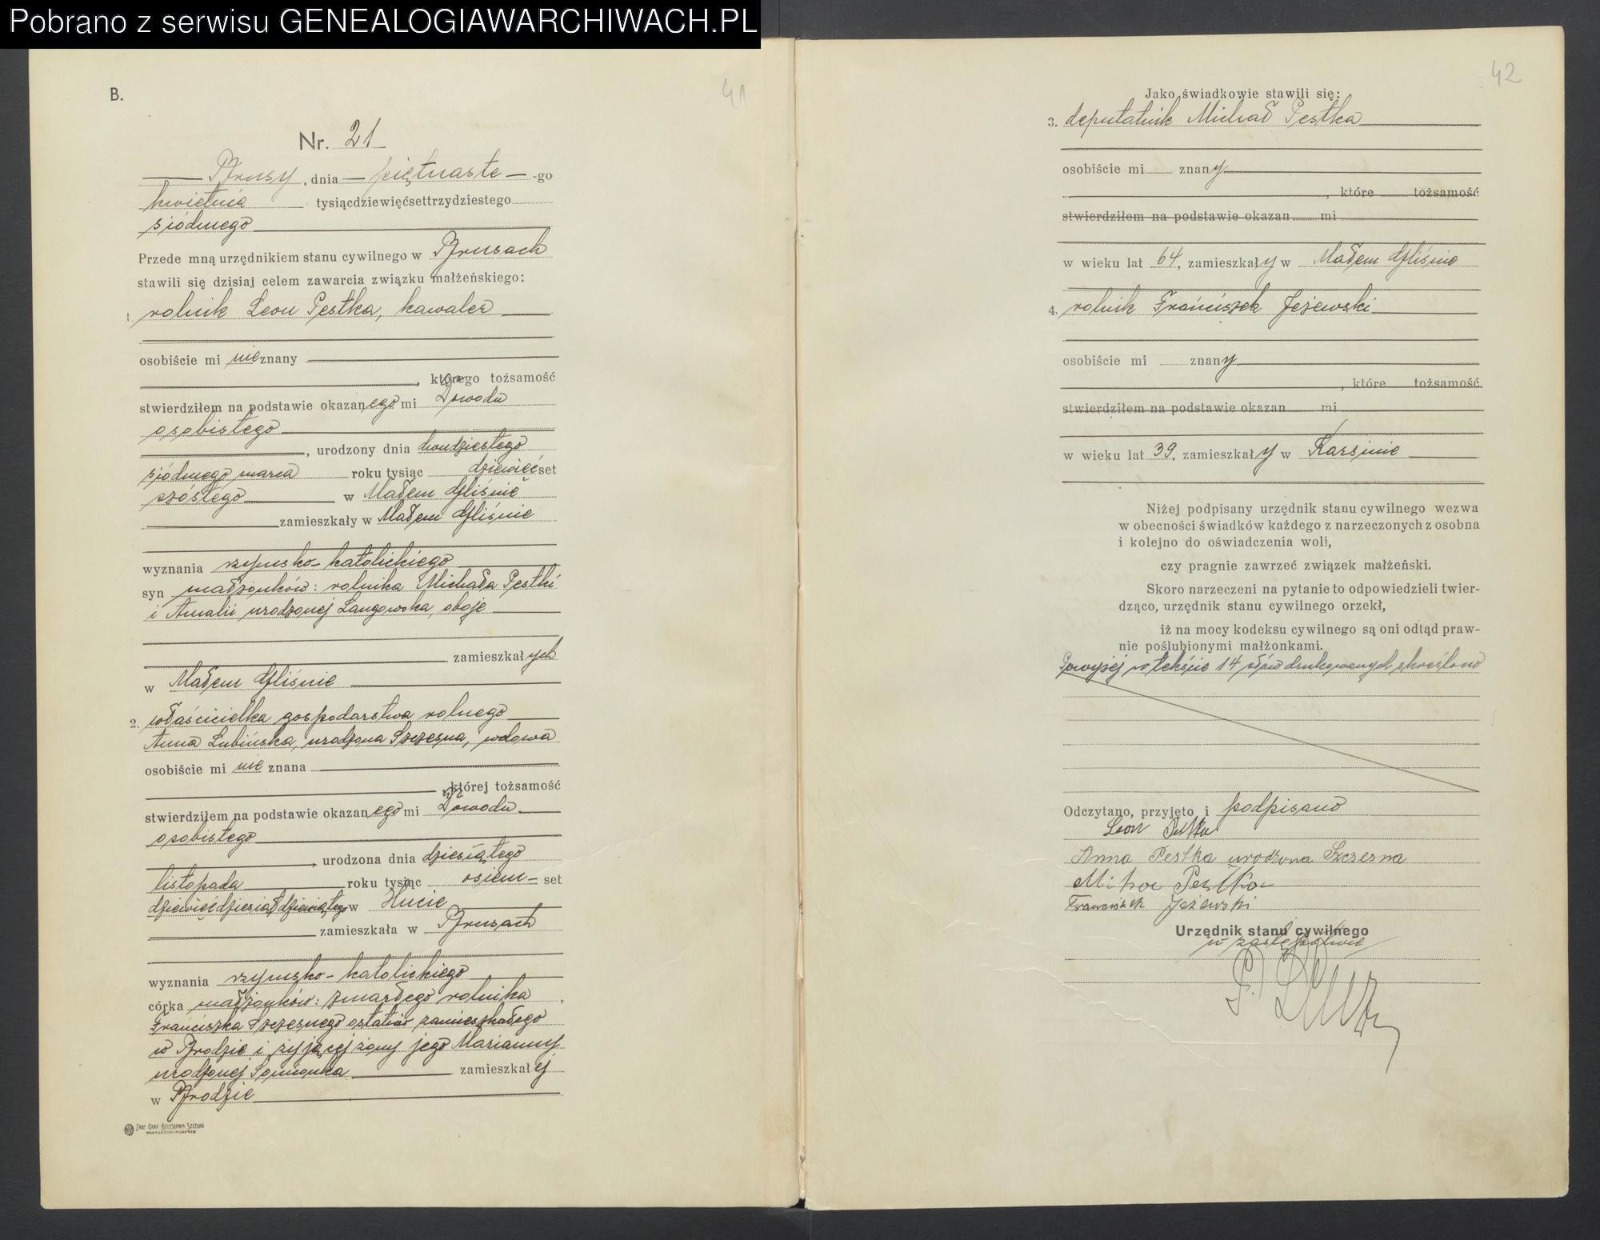 Pobrano z serwisu GENEALOGIAWARCHIWACH.PL
B.
41
Nr. 21
Brusy, dnia piętnaste -go
kwietnia tysiącdziewięćsettrzydziestego
siódmego
Przede mną urzędnikiem stanu cywilnego w Brusach
stawili się dzisiaj celem zawarcia związku małżeńskiego:
1. rolnik Leon Pestka, kawaler
osobiście mi nieznany
, którego tożsamość
stwierdziłem na podstawie okazanego mi Dowodu
osobistego
, urodzony dnia dwudziestego
siódmego marca roku tysiąc dziewięćset
szóstego w Małem Gliśnie
zamieszkały w Małem Gliśnie
wyznania rzymsko-katolickiego
syn małżonków: rolnika Michała Pestki
i Amalii urodzonej Langowska, oboje
zamieszkałych
w Małem Gliśnie
2. właścicielka gospodarstwa rolnego
Anna Lubińska, urodzona Szczesna, wdowa
osobiście mi nie znana
której tożsamość
stwierdziłem na podstawie okazanego mi Dowodu
osobistego
, urodzona dnia dziesiątego
listopada roku tysiąc osiem- set
dziewięćdziesiątdziewiątego w Hucie
zamieszkała w Brusach
wyznania rzymsko-katolickiego
córka małżonków: zmarłego rolnika
Franciszka Szczesnego ostatnio zamieszkałego
w Brodzie i żyjącej żony jego Marianny
urodzonej zamieszkałej
w Brodzie
42
Jako świadkowie stawili się:
3. deputatnik Michał Pestka
osobiście mi znany
, które tożsamość
stwierdziłem na podstawie okazan mi
w wieku lat 64, zamieszkały w Małem Gliśnie
4. rolnik Franciszek Jeżewski
osobiście mi znany
, które tożsamość
stwierdziłem na podstawie okazan mi
w wieku lat 39, zamieszkały w Karsinie
Niżej podpisany urzędnik stanu cywilnego wezwa
w obecności świadków każdego z narzeczonych z osobna
i kolejno do oświadczenia woli,
czy pragnie zawrzeć związek małżeński.
Skoro narzeczeni na pytanie to odpowiedzieli twier-
dząco, urzędnik stanu cywilnego orzekł,
iż na mocy kodeksu cywilnego są oni odtąd praw-
nie poślubionymi małżonkami.
Powyżej w tekście 14 słów drukowanych skreślono
Odczytano, przyjęto i podpisano
Leon Pestka
Anna Pestka urodzona Szczesna
Pestka
Franciszek Jeżewski
Urzędnik stanu cywilnego
w zastępstwie